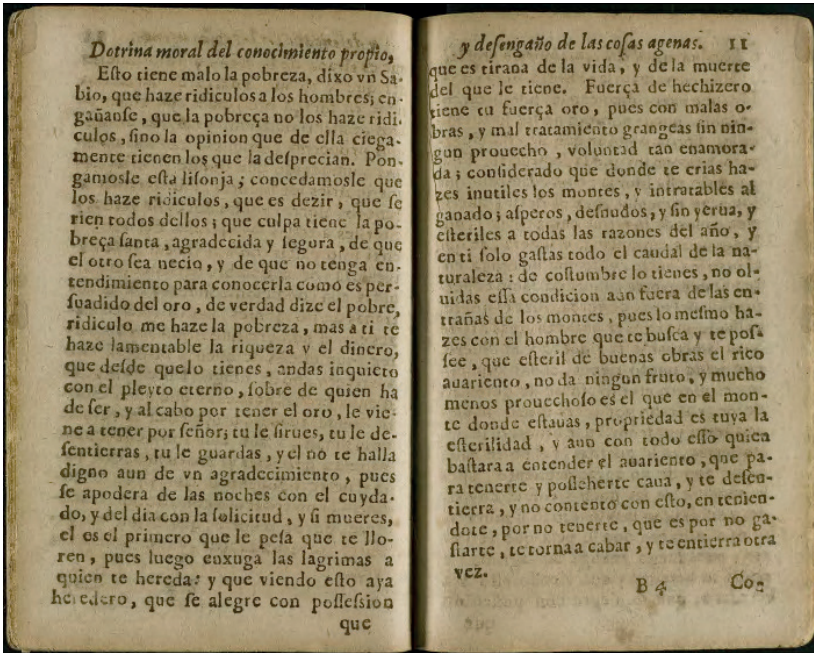 Dotrina moral del conocimiento propio,
Eſto tiene malo la pobreza, dixo vn Sa-
bio, que haze ridiculos a los hombres; en-
gañanſe, que la pobreça no los haze ridi-
culos, ſino la opinion que de ella ciega-
mente tienen los que la deſprecian. Pon-
gamosle eſta liſonja; concedamosle que
los haze ridiculos, que es dezir, que ſe
rien todos dellos; que culpa tiene la po-
breça ſanta, agradecida y ſegura, de que
el otro ſea necio, y de que no tenga en-
tendimiento para conocerla como es per-
ſuadido del oro, de verdad dize el pobre,
ridiculo me haze la pobreza, mas a ti te
haze lamentable la riqueza y el dinero,
que deſde quelo tienes, andas inquieto
con el pleyto eterno, ſobre de quien ha
de ſer, y al cabo por tener el oro, le vie-
ne a tener por ſeñor; tu le ſirues, tu le de-
ſentierras, tu le guardas, y el no te halla
digno aun de vn agradecimiento, pues
ſe apodera de las noches con el cuyda-
do, y del dia con la ſolicitud, y ſi mueres,
el es el primero que le peſa que te llo-
ren, pues luego enxuga las lagrimas a
quien te hereda: y que viendo eſto aya
heredero, que ſe alegre con poſſeſsion
que
y deſengaño de las coſas agenas. 11
que es tirana de la vida, y de la muerte
del que le tiene. Fuerça de hechizero
tiene tu fuerça oro, pues con malas o-
bras, y mal tratamiento grangeas ſin nin-
gun prouecho, voluntad tan enamora-
da; conſiderado que donde te crias ha-
zes inutiles los montes, y intratables al
ganado; aſperos, deſnudos, y ſin yerua, y
eſteriles a todas las razones del año, y
en ti ſolo gaſtas todo el caudal de la na-
turaleza: de coſtumbre lo tienes, no ol-
uidas eſſa condicion aun fuera de las en-
trañas de los montes, pues lo meſmo ha-
zes con el hombre que te buſca y te poſ-
ſee, que eſteril de buenas obras el rico
auariento, no da ningun fruto, y mucho
menos prouechoſo es el que en el mon-
te donde eſtauas, propriedad es tuya la
eſterilidad, y aun con todo eſſo quien
baſtara a entender el auariento, que pa-
ra tenerte y poſſeherte caua, y te deſen-
tierra, y no contento con eſto, en tenien-
dote, por no tenerte, que es por no ga-
ſtarte, te torna a cabar, y te entierra otra
vez.
B 4 Co-